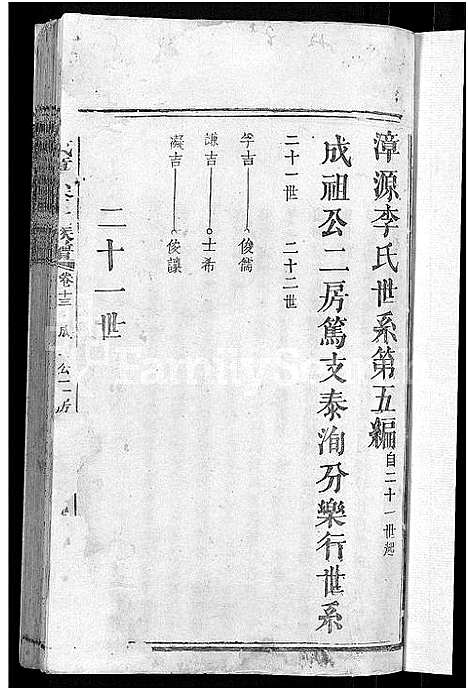 漳源李氏世系第五編 自二十一世起
成祖公二房篤支泰洵分樂行世系
二十一世 二十二世
孚吉 俊儒
謙吉 士希
凝吉 俊讓
二十一世
卷十三